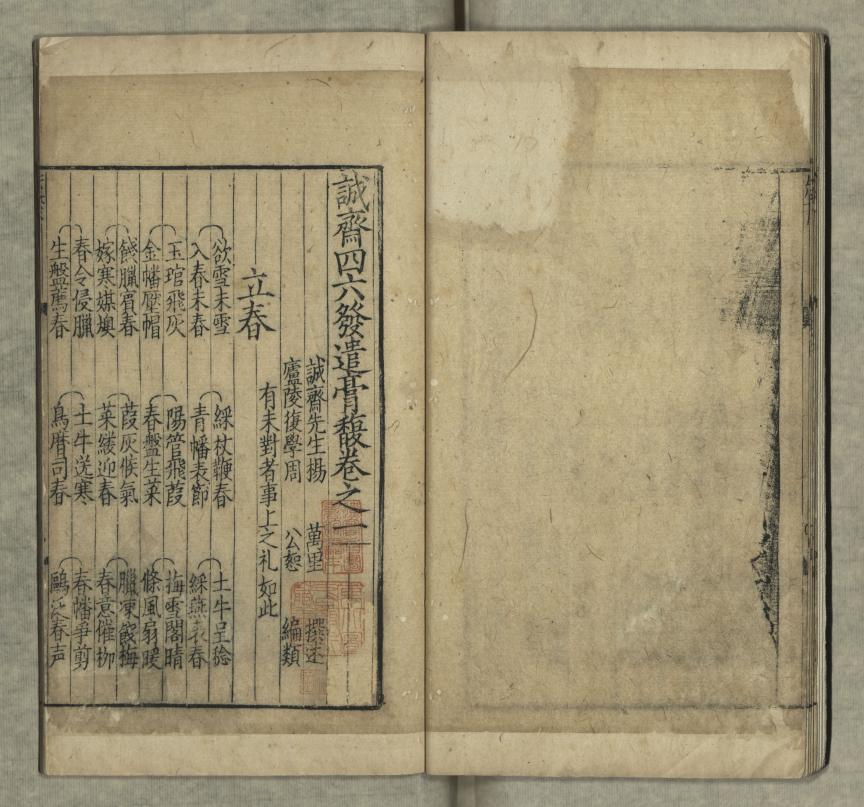 誠齋四六發遣膏馥卷之一
誠齋先生楊 萬里 撰述
廬陵後學周 公恕 編類
有未對者事上之礼如此
立春
欲雪未雪 綵杖鞭春 土牛呈稔
入春未春 青幡表節 綵燕表春
玉琯飛灰 陽管飛葭 梅雪閣晴
金幡壓帽 春盤生菜 條風扇暖
餞臘賓春 葭灰候氣 臘凍餞梅
嫁寒媒燠 菜縷迎春 春意催柳
春令侵臘 土牛送寒 春幡爭剪
生盤薦春 鳥曆司春 春声